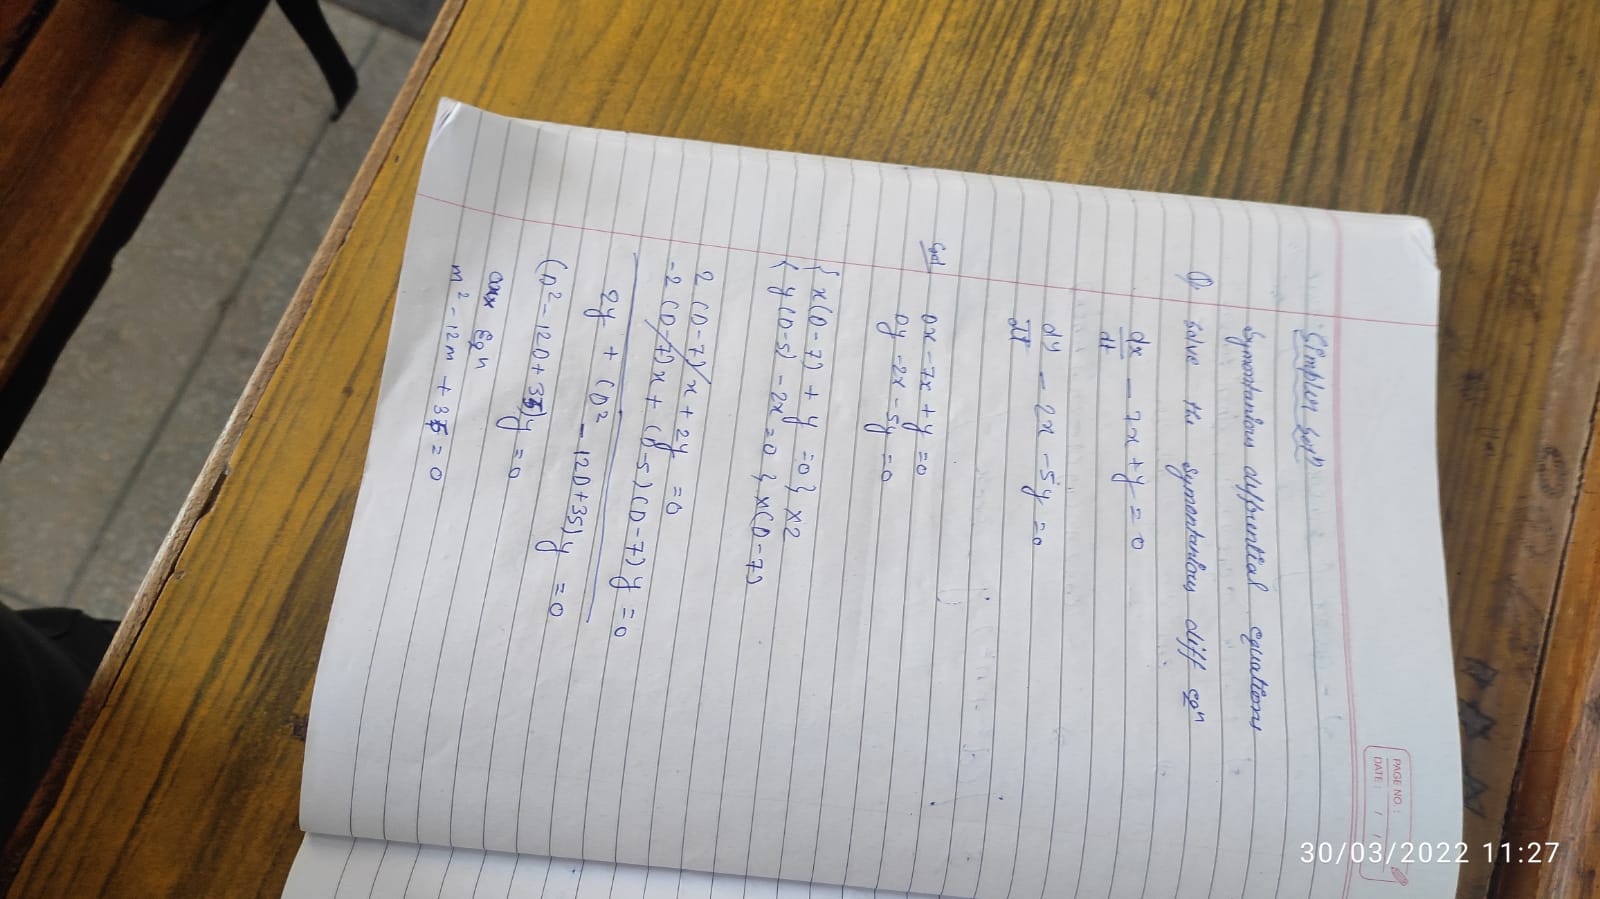 PAGE NO.:
DATE: / /
Simplen Soln
Symontanious diffrential equations
Q. Solve the symontanious diff eqn
dx/dt - 7x + y = 0
dy/dt - 2x - 5y = 0
Sol Dx - 7x + y = 0
Dy - 2x - 5y = 0
{ x(D-7) + y = 0 } x 2
{ y(D-5) - 2x = 0 } x (D-7)
2 (D-7) x + 2y = 0
-2 (D-7) x + (D-5) (D-7) y = 0
2y + (D² - 12D + 35) y = 0
(D² - 12D + 35) y = 0
aux Eqn
m² - 12m + 35 = 0
30/03/2022 11:27